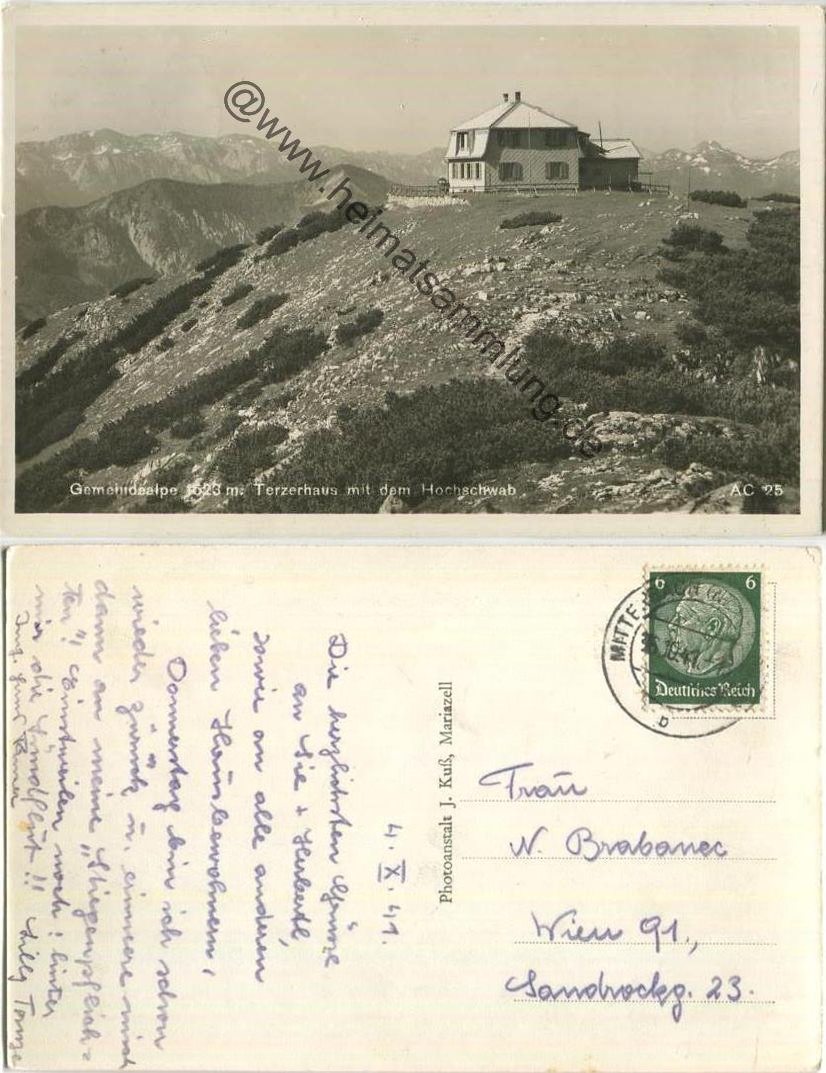 @www.heimatsammlung.de
Gemeindealpe 1623 m: Terzerhaus mit dem Hochschwab
AC 25
6 6
MITTE
Deutsches Reich
b
Photoanstalt J. Kuß, Mariazell
4. X. 41.
Die herzlichsten Grüsse
an Sie + Huberte,
sowie an alle anderen
lieben Hausbewohnern,
Donnerstag bin ich schon
wieder zurück u. erinnere mich
dann an meine „Stiegenpflich=
ten"! Einstweilen noch: hinter
mir die Sündflut!! Lilly
Ing.
Frau
N. Brabanec
Wien 91.,
Sandrockg. 23.